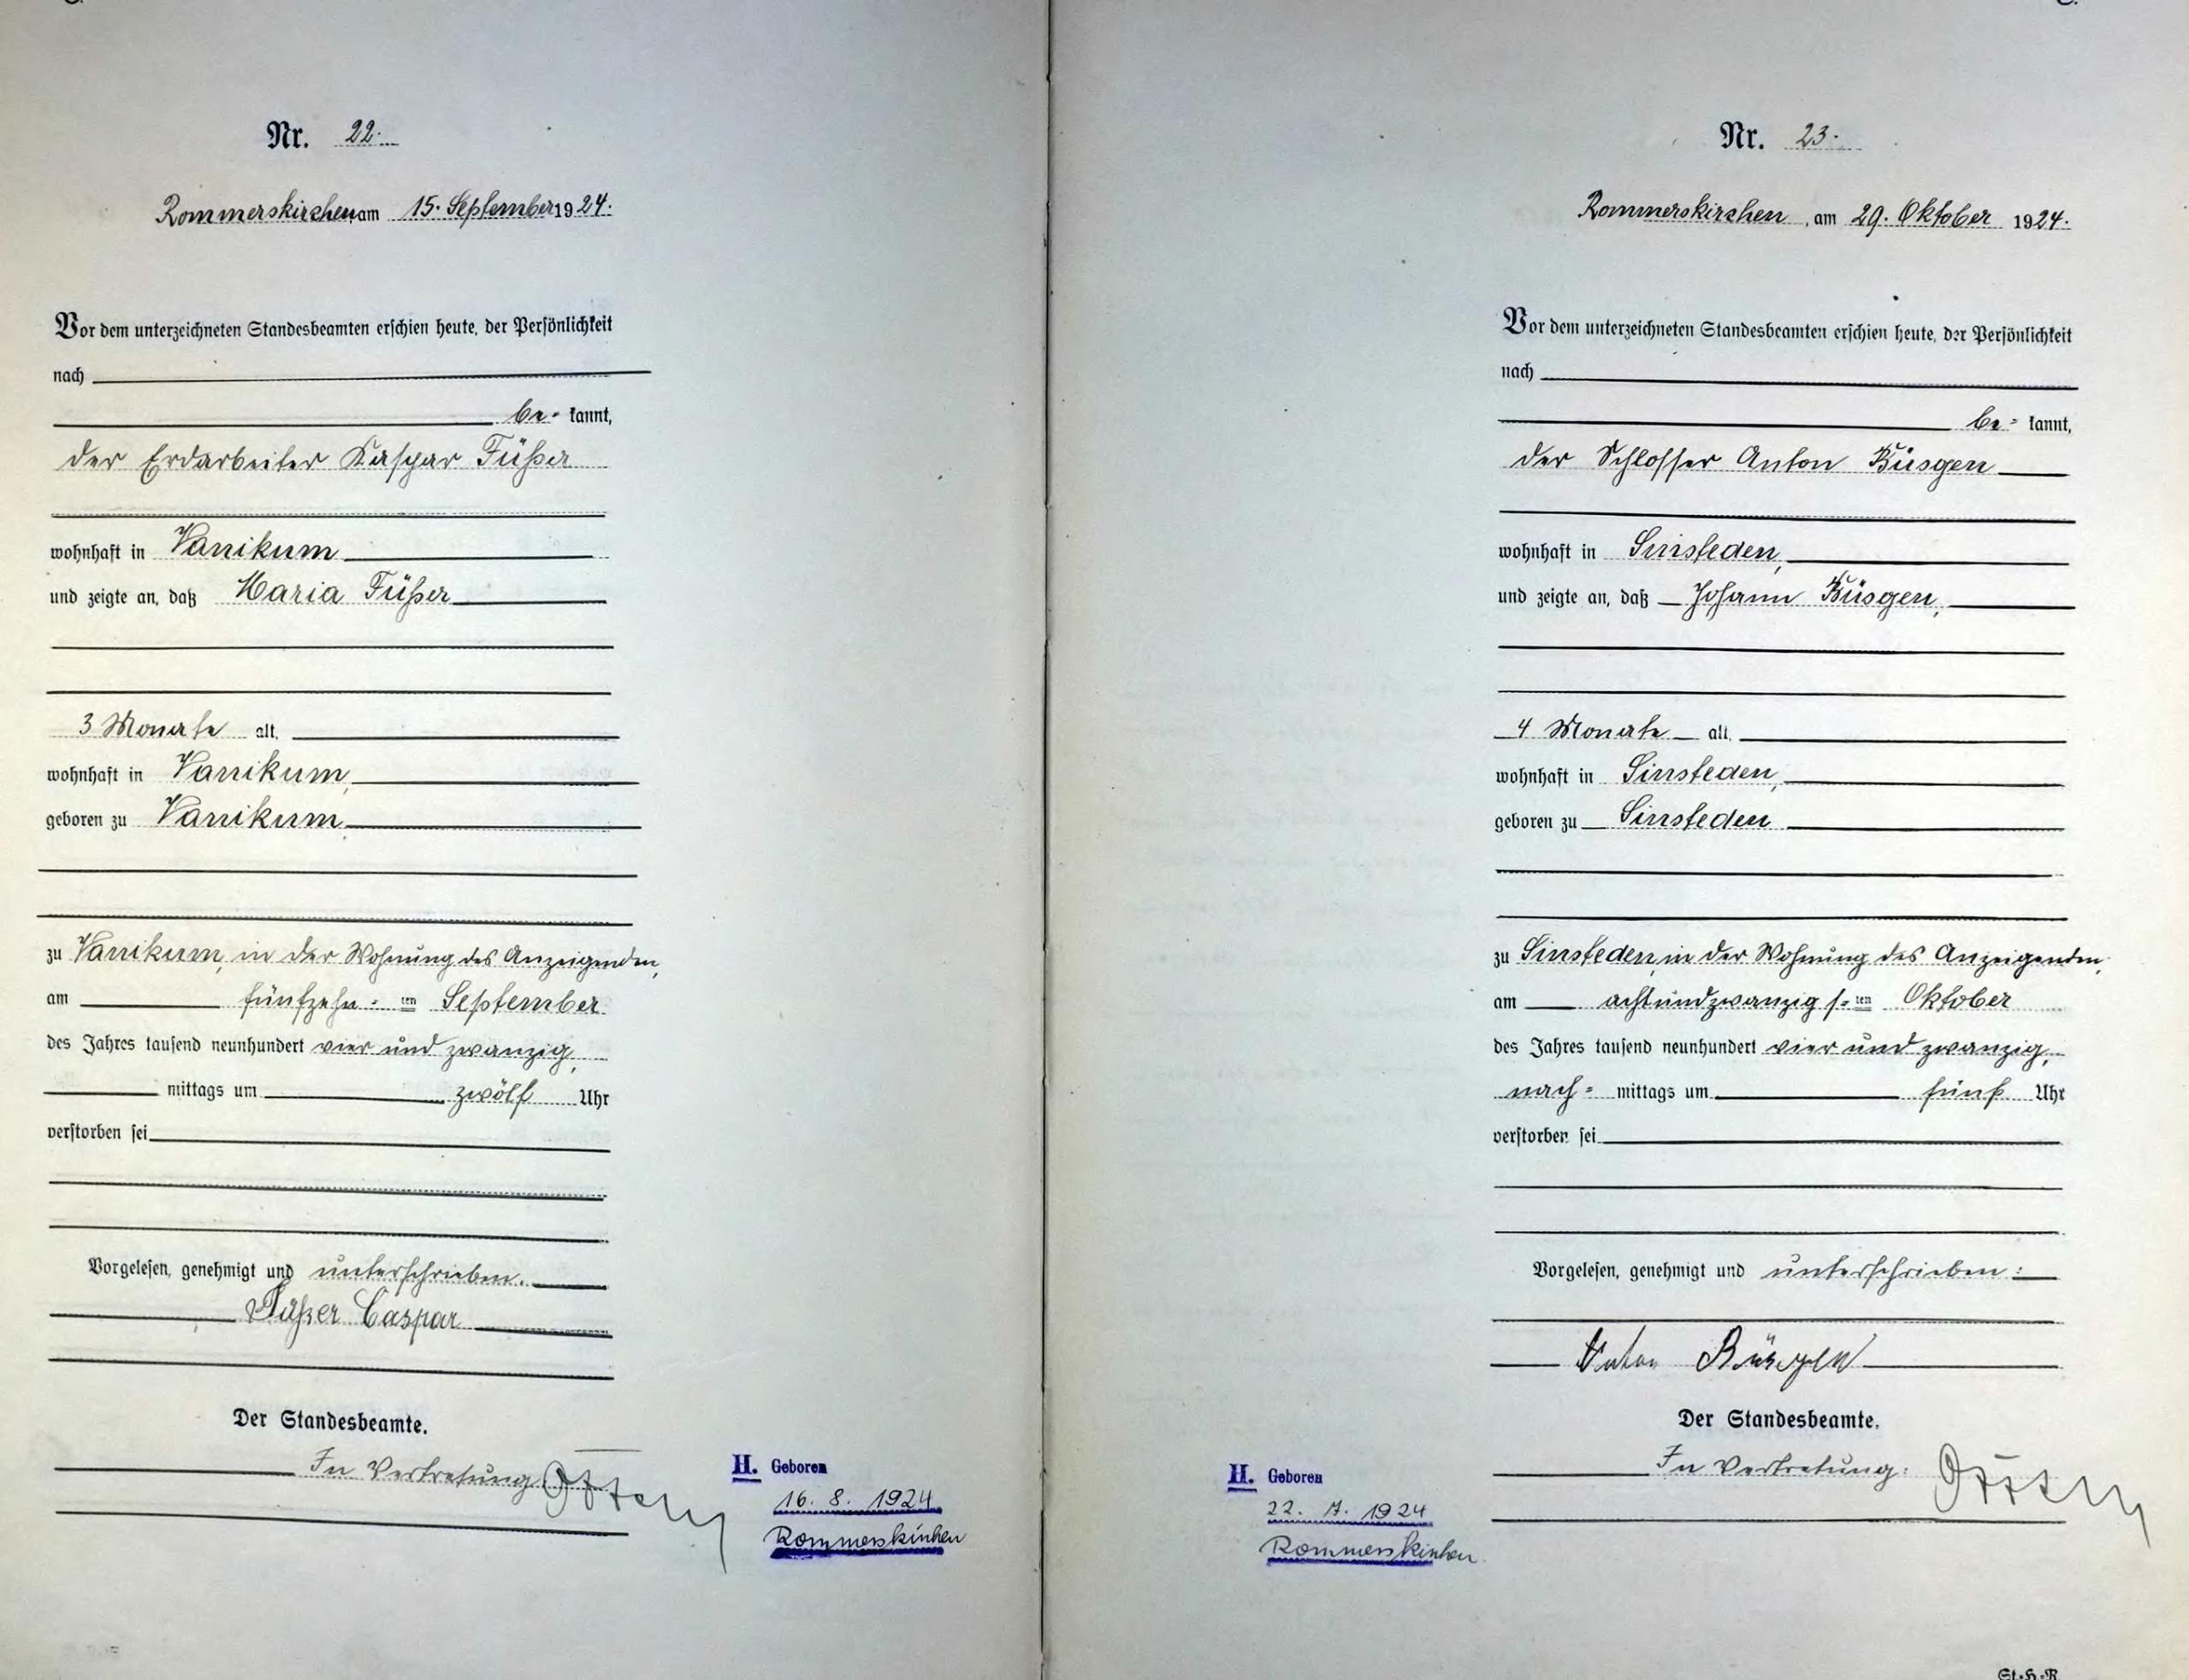 Nr. 22.
Rommerskirchen, am 15. September 1924.
Vor dem unterzeichneten Standesbeamten erschien heute, der Persönlichkeit
nach
be= kannt,
der Erdarbeiter Kaspar Füßer
wohnhaft in Vanikum
und zeigte an, daß Maria Füßer
3 Monate alt,
wohnhaft in Vanikum,
geboren zu Vanikum
zu Vanikum, in der Wohnung des Anzeigenden,
am fünfzehn=ten September
des Jahres tausend neunhundert vier und zwanzig,
mittags um zwölf Uhr
verstorben sei
Vorgelesen, genehmigt und unterschrieben.
Füßer Caspar
Der Standesbeamte.
In Vertretung
H. Geboren
16. 8. 1924
Rommerskirchen
Nr. 23.
Rommerskirchen, am 29. Oktober 1924.
Vor dem unterzeichneten Standesbeamten erschien heute, der Persönlichkeit
nach
be= kannt,
der Schlosser Anton Büsgen
wohnhaft in Sinsteden,
und zeigte an, daß Johann Büsgen,
4 Monate alt,
wohnhaft in Sinsteden,
geboren zu Sinsteden
zu Sinsteden, in der Wohnung des Anzeigenden,
am achtundzwanzigs=ten Oktober
des Jahres tausend neunhundert vier und zwanzig,
nach= mittags um fünf Uhr
verstorben sei
Vorgelesen, genehmigt und unterschrieben:
Anton Büsgen
Der Standesbeamte.
In Vertretung:
H. Geboren
22. 7. 1924
Rommerskirchen